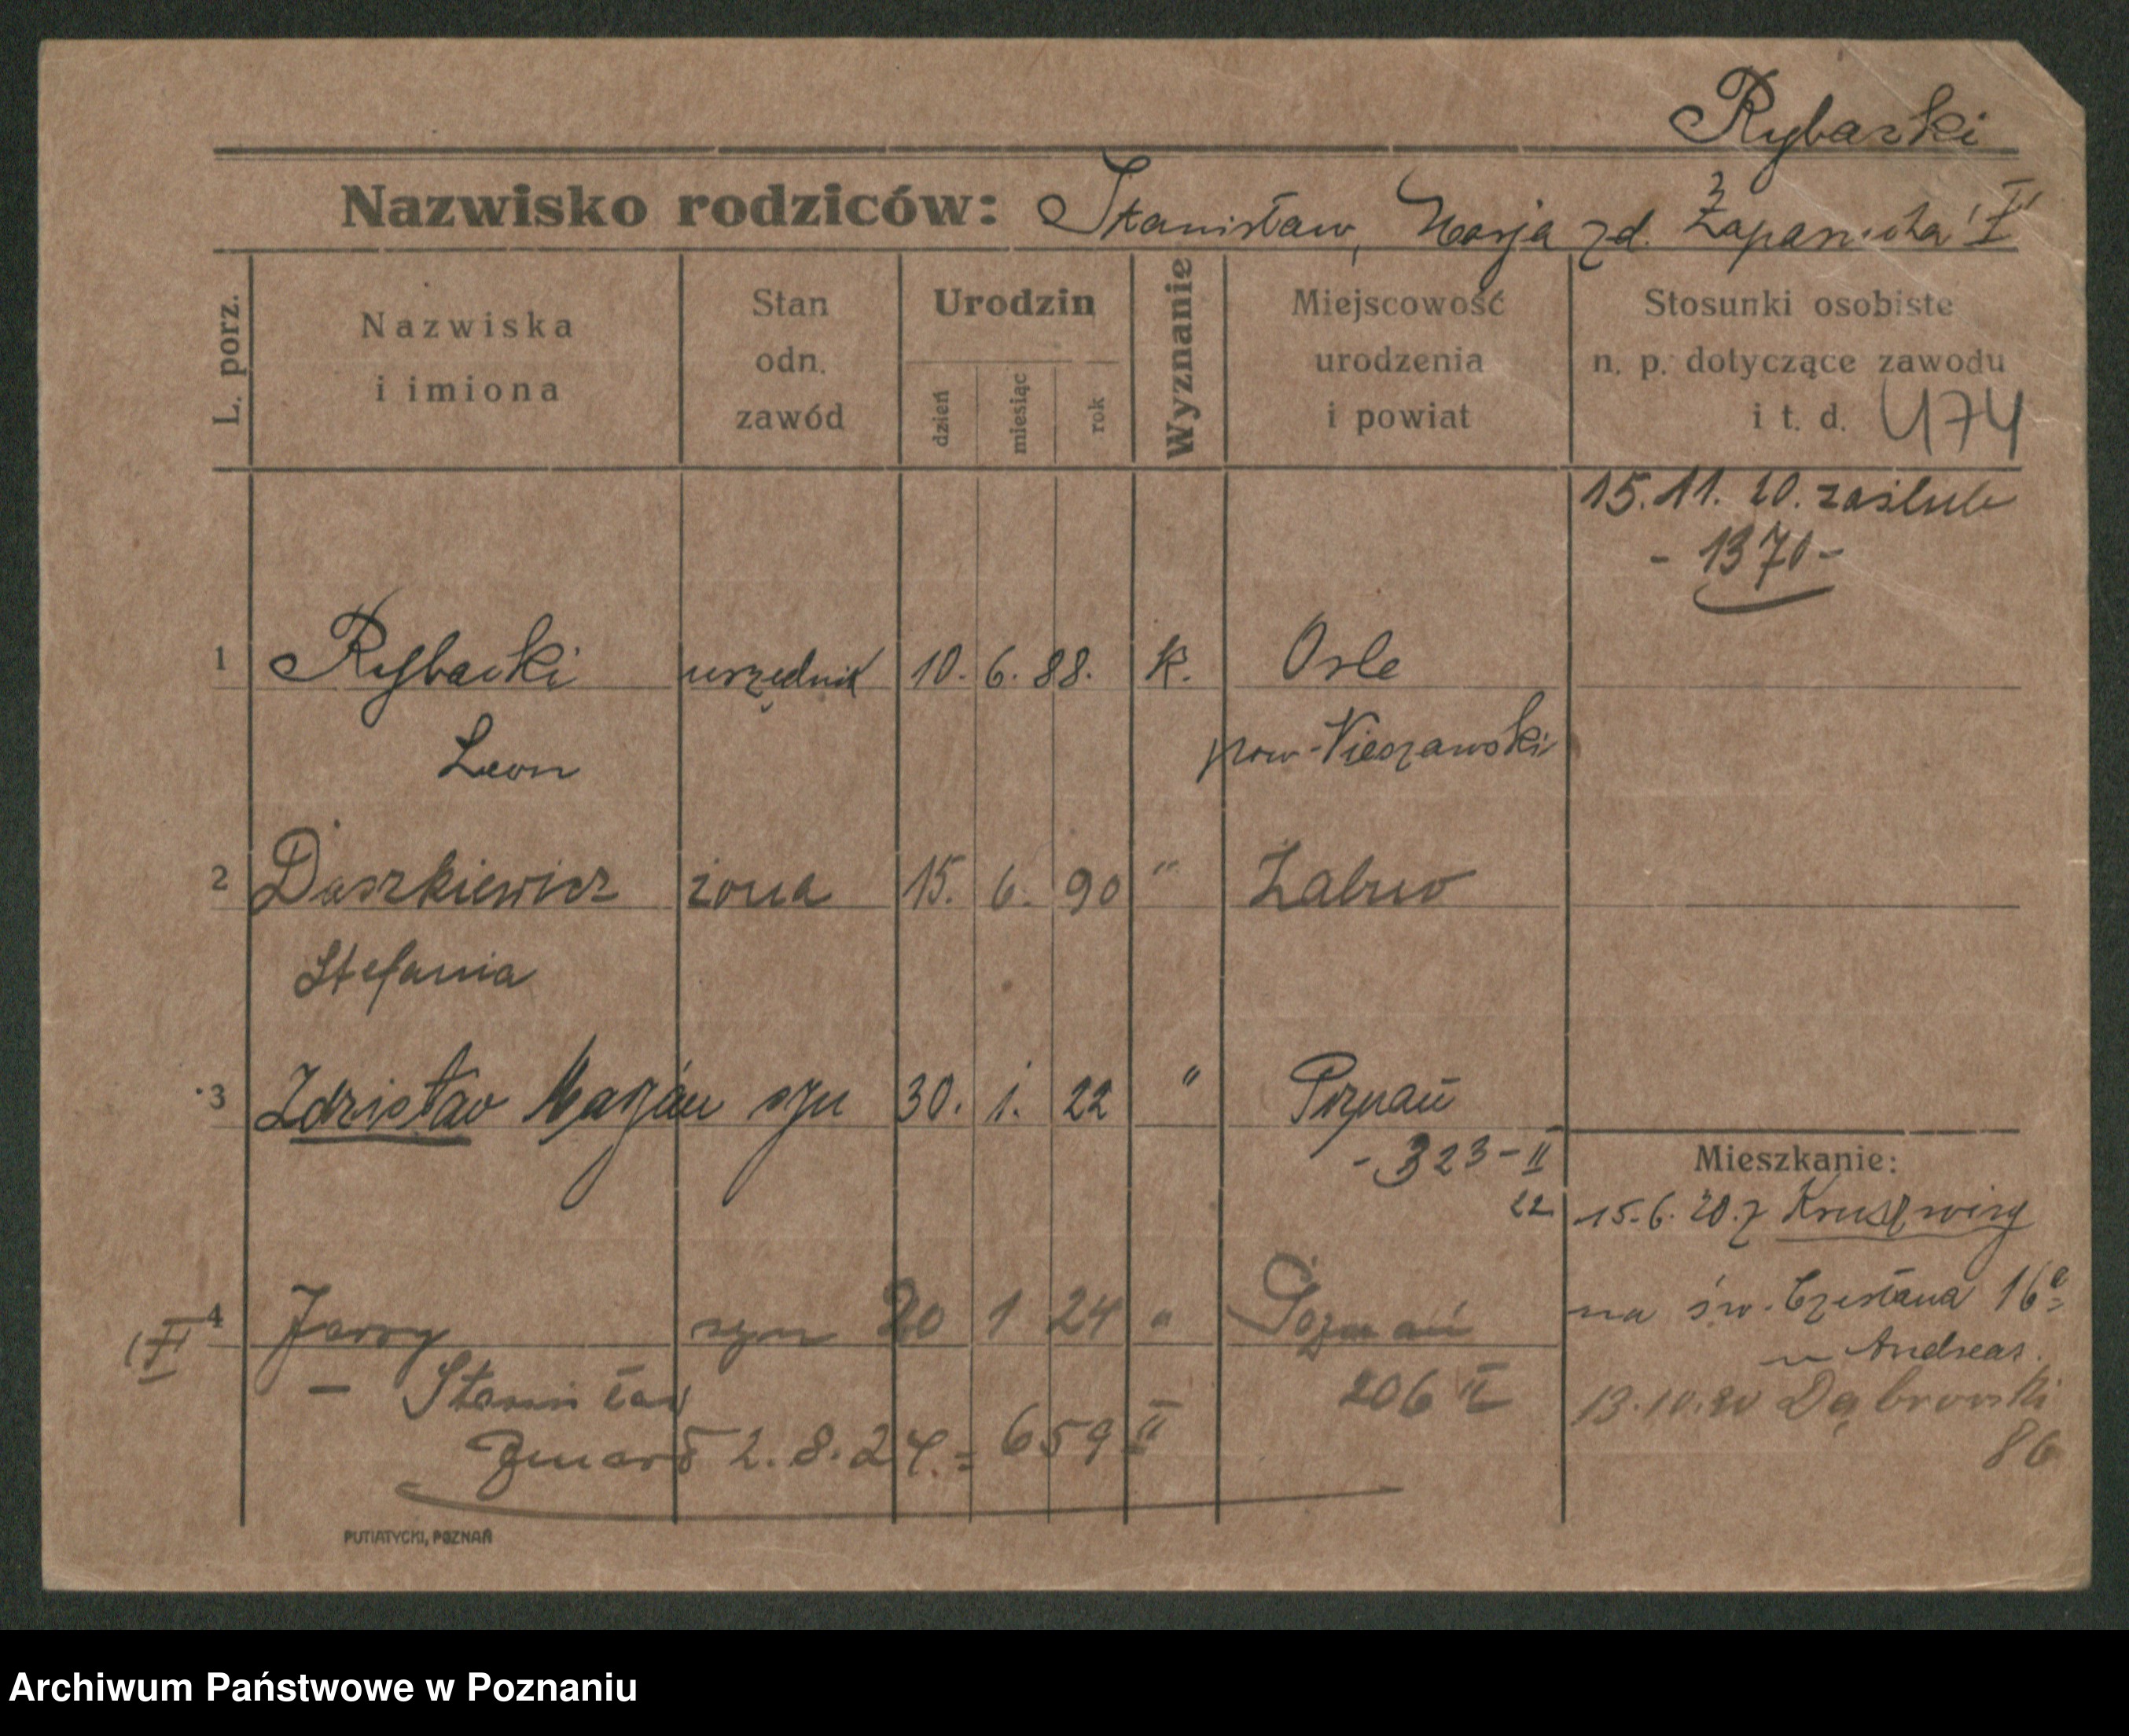 Rybacki
Nazwisko rodziców: Stanisław, Marja zd. "I"
L. porz.
Nazwiska i imiona
Stan odn. zawód
Urodzin
dzień
miesiąc
rok
Wyznanie
Miejscowość urodzenia i powiat
Stosunki osobiste n. p. dotyczące zawodu i t. d. U74
15. 11. 20. zaślub
- 1370 -
1 Rybacki urzędnik 10. 6. 88. K. Osle
Leon pow. Nieszawski
2 Daszkiewicz żona 15. 6. 90 " Żabno
Stefania
3 Zdzisław Marjan syn 30. 1. 22 " Poznań
- 323 - II
22
Mieszkanie:
15. 6. 20. z Kruszwicy
na św. Czesława 16a
u Andreas.
13. 10. 20 Dąbrowski
86
4 Jerzy syn 20 1 24 " Poznań
"I"
- Stanisław 206 II
Zmarł 2. 8. 24. = 659 II
PUTIATYCKI, POZNAŃ
Archiwum Państwowe w Poznaniu